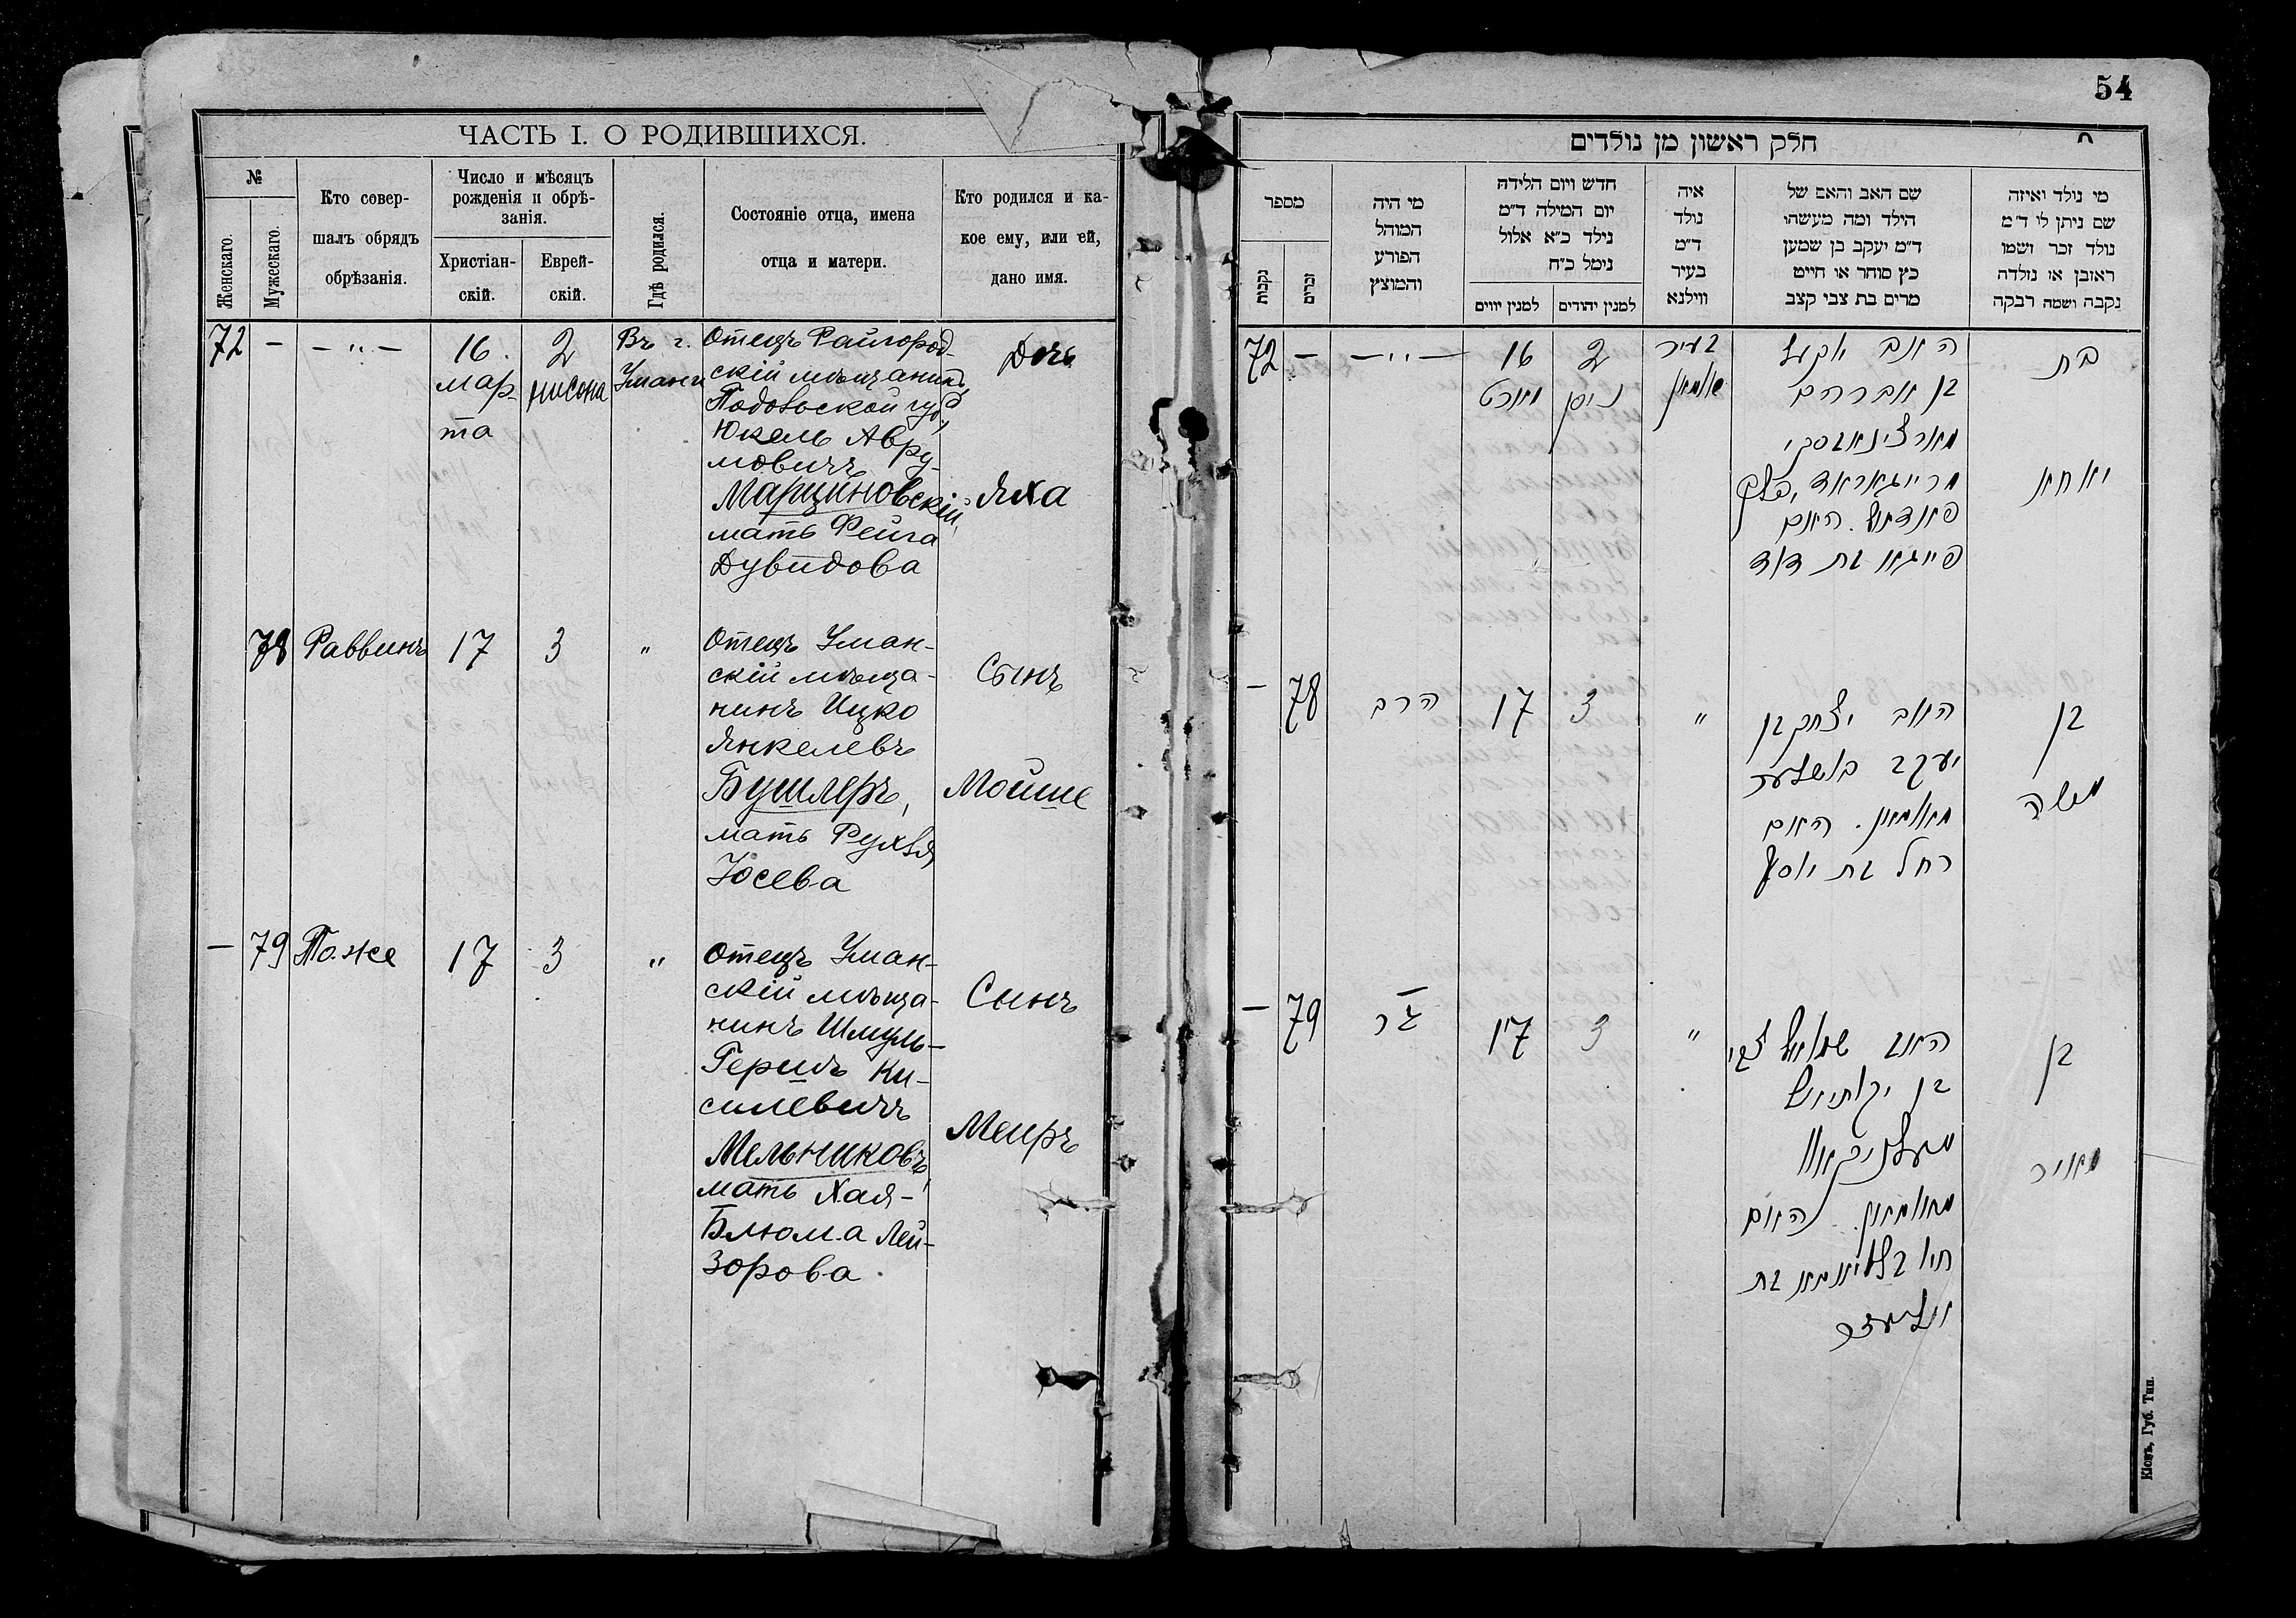 ЧАСТЬ I. О РОДИВШИХСЯ.
№
Женскаго.
Мужескаго.
Кто совер-
шалъ обрядъ
обрѣзанія.
Число и мѣсяцъ
рожденія и обрѣ-
занія.
Христіан-
скій.
Еврей-
скій.
Гдѣ родился.
Состояніе отца, имена
отца и матери.
Кто родился и ка-
кое ему, или ей,
дано имя.
72 — — „ —
16.
Мар-
та
2
нисона
Въ г.
Умани
Отецъ Райгород-
скій мѣщанинъ
Подольской губ.,
Юкель Авру-
мовичъ
Марциновскій,
мать Фейга
Дувидова
Дочь
Яха
78 Раввинъ 17 3 „
Отецъ Уман-
скій мѣща-
нинъ Ицко
Янкелевъ
Бушлеръ,
мать Рухля
Іосева
Сынъ
Мойше
— 79 Тоже 17 3 „
Отецъ Уман-
скій мѣща-
нинъ Шмуль-
Гершъ Ки-
силевичъ
Мельниковъ,
мать Хая-
Блюма Лей-
зорова
Сынъ
Меиръ
54
חלק ראשון מן נולדים
מספר
נקבות
זכרים
מי היה
המוהל
הפורע
והמוצץ
חדש ויום הלידה
יום המילה ד״מ
נילד כ״א אלול
נימל כ״ח
למנין יווים
למנין יהודים
איה
נולד
ד״מ
בעיר
ווילנא
שם האב והאם של
הילד ומה מעשהו
ד״מ יעקב בן שמען
כץ סוחר או חייט
מרים בת צבי קצב
מי נולד ואיזה
שם ניתן לו ד״מ
נולד זכר ושמו
ראובן או נולדה
נקבה ושמה רבקה
72 — — „ —
16
מארט
2
ניסן
בעיר
אומאן
האב יוקעל
בן אברהם
מארצינאווסקי
פאדאל. האם
פייגא בת דוד
בת
יאחא
— 78 הרב 17 3 „
האב יצחק בן
יעקב בושלער
מאומאן. האם
רחל בת יוסף
בן
משה
— 79
17 3 „
האב שמואל צבי
בן יקותיאל
מעלניקאוו
מאומאן. האם
חיה בליומא בת
אליעזר
בן
מאיר
Кіевъ, Губ. Тип.